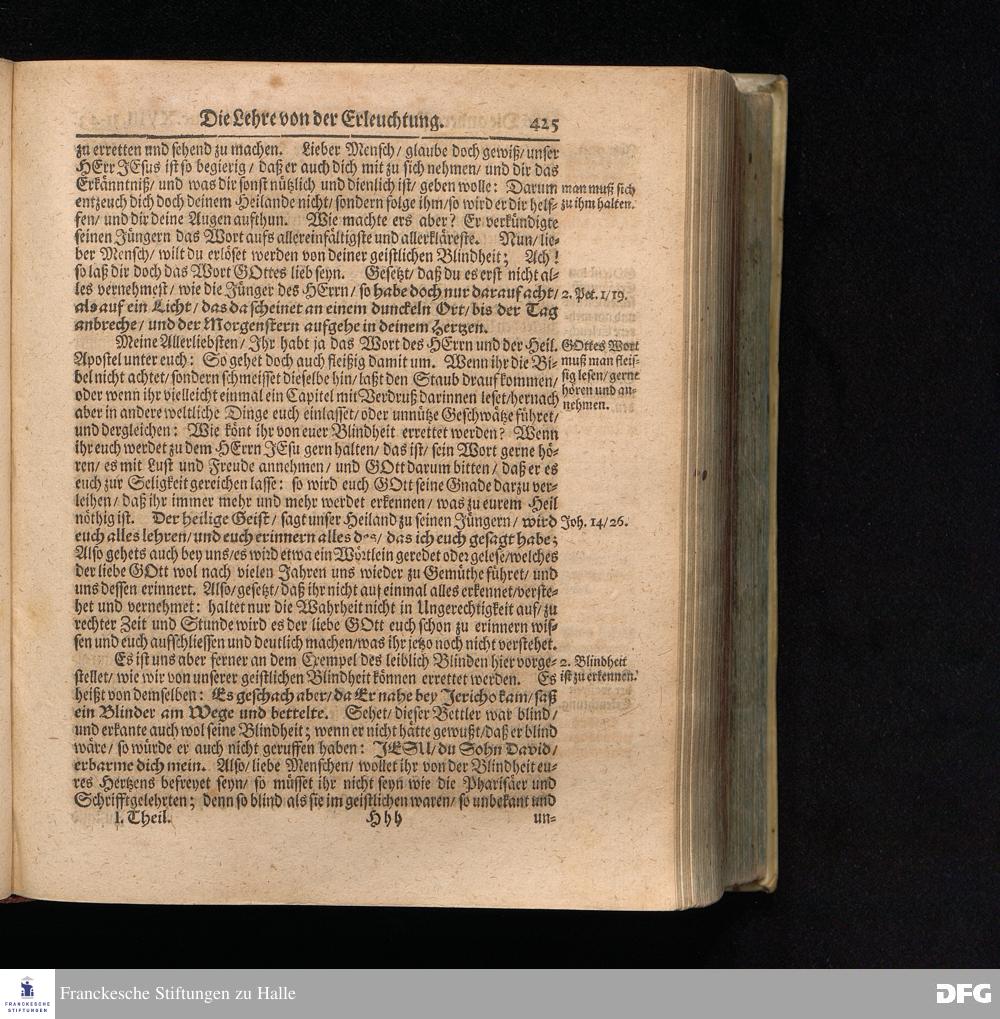 Die Lehre von der Erleuchtung. 425
zu erretten und sehend zu machen. Lieber Mensch/ glaube doch gewiß/ unser
HErr JEsus ist so begierig/ daß er auch dich mit zu sich nehmen/ und dir das
Erkänntniß/ und was dir sonst nützlich und dienlich ist/ geben wolle: Darum
man muß sich
entzeuch dich doch deinem Heilande nicht/ sondern folge ihm/ so wird er dir helf-
zu ihm halten.
fen/ und dir deine Augen aufthun. Wie machte ers aber? Er verkündigte
seinen Jüngern das Wort aufs allereinfältigste und allerkläreste. Nun/ lie-
ber Mensch/ wilt du erlöset werden von deiner geistlichen Blindheit; Ach!
so laß dir doch das Wort GOttes lieb seyn. Gesetzt/ daß du es erst nicht al-
les vernehmest/ wie die Jünger des HErrn/ so habe doch nur darauf acht/
2. Pet. 1/19.
als auf ein Licht/ das da scheinet an einem dunckeln Ort/ bis der Tag
anbreche/ und der Morgenstern aufgehe in deinem Hertzen.
Meine Allerliebsten/ Ihr habt ja das Wort des HErrn und der Heil.
GOttes Wort
Apostel unter euch: So gehet doch auch fleißig damit um. Wenn ihr die Bi-
muß man fleis-
bel nicht achtet/ sondern schmeisset dieselbe hin/ laßt den Staub drauf kommen/
sig lesen/ gerne
oder wenn ihr vielleicht einmal ein Capitel mit Verdruß darinnen leset/ hernach
hören und an-
aber in andere weltliche Dinge euch einlasset/ oder unnütze Geschwätze führet/
nehmen.
und dergleichen: Wie könt ihr von euer Blindheit errettet werden? Wenn
ihr euch werdet zu dem HErrn JEsu gern halten/ das ist/ sein Wort gerne hö-
ren/ es mit Lust und Freude annehmen/ und GOtt darum bitten/ daß er es
euch zur Seligkeit gereichen lasse: so wird euch GOtt seine Gnade darzu ver-
leihen/ daß ihr immer mehr und mehr werdet erkennen/ was zu eurem Heil
nöthig ist. Der heilige Geist/ sagt unser Heiland zu seinen Jüngern/ wird
Joh. 14/26.
euch alles lehren/ und euch erinnern alles des/ das ich euch gesagt habe;
Also gehets auch bey uns/ es wird etwa ein Wörtlein geredet oder gelesē/ welches
der liebe GOtt wol nach vielen Jahren uns wieder zu Gemüthe führet/ und
uns dessen erinnert. Also/ gesetzt/ daß ihr nicht auf einmal alles erkennet/ verste-
het und vernehmet: haltet nur die Wahrheit nicht in Ungerechtigkeit auf/ zu
rechter Zeit und Stunde wird es der liebe GOtt euch schon zu erinnern wis-
sen und euch aufschliessen und deutlich machen/ was ihr jetzo noch nicht verstehet.
Es ist uns aber ferner an dem Exempel des leiblich Blinden hier vorge-
2. Blindheit
stellet/ wie wir von unserer geistlichen Blindheit können errettet werden. Es
ist zu erkennen.
heißt von demselben: Es geschach aber/ da Er nahe bey Jericho kam/ saß
ein Blinder am Wege und bettelte. Sehet/ dieser Bettler war blind/
und erkante auch wol seine Blindheit; wenn er nicht hätte gewußt/ daß er blind
wäre/ so würde er auch nicht geruffen haben: JESU/ du Sohn David/
erbarme dich mein. Also/ liebe Menschen/ wollet ihr von der Blindheit eu-
res Hertzens befreyet seyn/ so müsset ihr nicht seyn wie die Pharisäer und
Schrifftgelehrten; denn so blind als sie im geistlichen waren/ so unbekant und
I. Theil. Hhh un-
FRANCKESCHE
STIFTUNGEN
Franckesche Stiftungen zu Halle
DFG